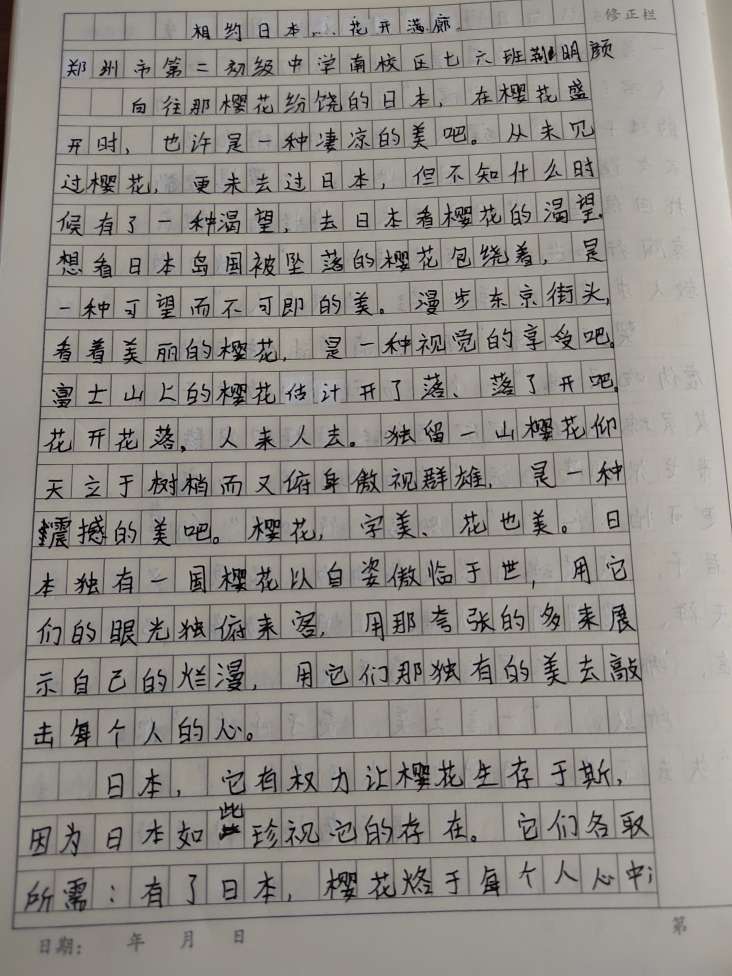 修正栏
相约日本...花开满廊
郑州市第二初级中学南校区七六班荆明颜
向往那樱花纷饶的日本，在樱花盛
开时，也许是一种凄凉的美吧。从未见
过樱花，更未去过日本，但不知什么时
候有了一种渴望，去日本看樱花的渴望。
想看日本岛国被坠落的樱花包绕着，是
一种可望而不可即的美。漫步东京街头，
看着美丽的樱花，是一种视觉的享受吧。
富士山上的樱花估计开了落、落了开吧。
花开花落，人来人去。独留一山樱花仰
天立于树梢而又俯身傲视群雄，是一种
震撼的美吧。樱花，字美、花也美。日
本独有一国樱花以自姿傲临于世，用它
们的眼光独俯来客，用那夸张的多来展
示自己的烂漫，用它们那独有的美去敲
击每个人的心。
日本，它有权力让樱花生存于斯，
因为日本如此珍视它的存在。它们各取
所需：有了日本，樱花烙于每个人心中；
日期： 年 月 日
第